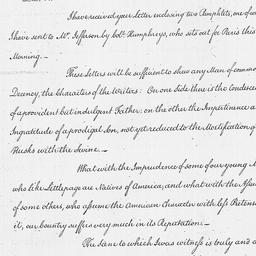 I have received your Letter inclosing two Pamphlets, one of w
I have sent to Mr. Jefferson by Coll. Humphreys, who sits out for Paris this
Morning.—
These Letters will be sufficient to shew any Man of common
Decency, the Characters of the Writers: On one Side there is the Condesce
of a provident but indulgent Father: on the other the Impertinence a
Ingratitude of a prodigal Son, not yet reduced to the Mortification of
Husks with the Swine.—
What with the Imprudence of some of our young M
who like Littlepage are Natives of America, and what with the Assu
of some others, who assume the American Character with less Pretens
it, our Country suffers very much in its Reputation.—
The Scene to which I was witness is truly and a